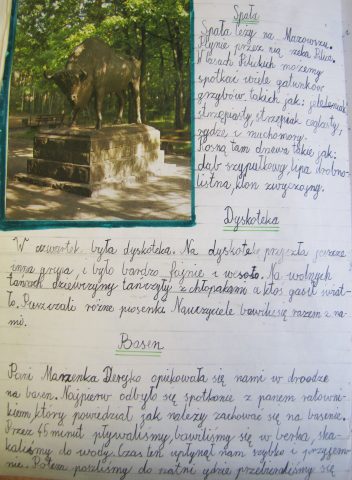 Spała
Spała leży na Mazowszu.
Płynie przez nią rzeka Pilica.
W lasach Pilickich możemy
spotkać wiele gatunków
grzybów takich jak: jeleniak
sternopiasty, strzępiak ceglasty,
rydze i muchomory.
Rosną tam drzewa takie jak:
dąb szypułkowy, lipa drobno-
listna, klon zwyczajny.
Dyskoteka
W czwartek była dyskoteka. Na dyskotekę przyszła jeszcze
inna grupa, i było bardzo fajnie i wesoło. Na wolnych
tańcach dziewczyny tańczyły z chłopakami a ktoś gasił świat-
ło. Puszczali różne piosenki. Nauczyciele bawili się razem z na-
mi.
Basen
Pani Marzenka Deryjko opiekowała się nami w drodze
na basen. Najpierw odbyło się spotkanie z panem ratowni-
kiem, który powiedział jak należy zachować się na basenie.
Przez 45 minut pływaliśmy, bawiliśmy się w berka, ska-
kaliśmy do wody. Czas ten upłynął nam szybko i przyjem-
nie. Potem poszliśmy do szatni gdzie przebraliśmy się